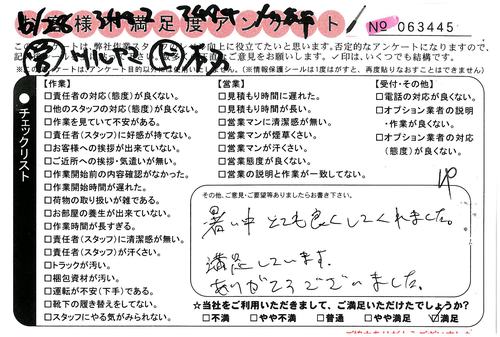 お客様不満足度アンケート
No 063445
このアンケートは、弊社作業スタッフの向上に役立てたいと思います。否定的なアンケートになりますので、
ご意見をお願いします。✓印は、いくつでも結構です。
※このアンケートは、アンケート目的以外には使いません。(※情報保護シールは1度はがすと、再度貼りなおすことはできません)
チェックリスト
【作業】
□責任者の対応(態度)が良くない。
□他のスタッフの対応(態度)が良くない。
□作業を見ていて不安がある。
□責任者(スタッフ)に好感が持てない。
□お客様への挨拶が出来ていない。
□ご近所への挨拶・気遣いが無い。
□作業開始前の内容確認がなかった。
□作業開始時間が遅れた。
□荷物の取り扱いが雑である。
□お部屋の養生が出来ていない。
□作業時間が長すぎる。
□責任者(スタッフ)に清潔感が無い。
□責任者(スタッフ)が汗くさい。
□トラックが汚い。
□梱包資材が汚い。
□運転が不安(下手)である。
□靴下の履き替えをしてない。
□スタッフにやる気がみられない。
【営業】
□見積もり時間に遅れた。
□見積もり時間が長い。
□営業マンに清潔感が無い。
□営業マンが煙草くさい。
□営業マンが汗くさい。
□営業態度が良くない。
□営業の説明と作業が一致してない。
【受付・その他】
□電話の対応が良くない。
□オプション業者の説明
・作業が良くない。
□オプション業者の対応
(態度)が良くない。
その他、ご意見・ご要望等ありましたらお書き下さい。
暑い中 とても良くしてくれました。
満足しています。
ありがとうございました。
☆当社をご利用いただきまして、ご満足いただけたでしょうか?
□不満 □やや不満 □普通 □やや満足 ☑満足